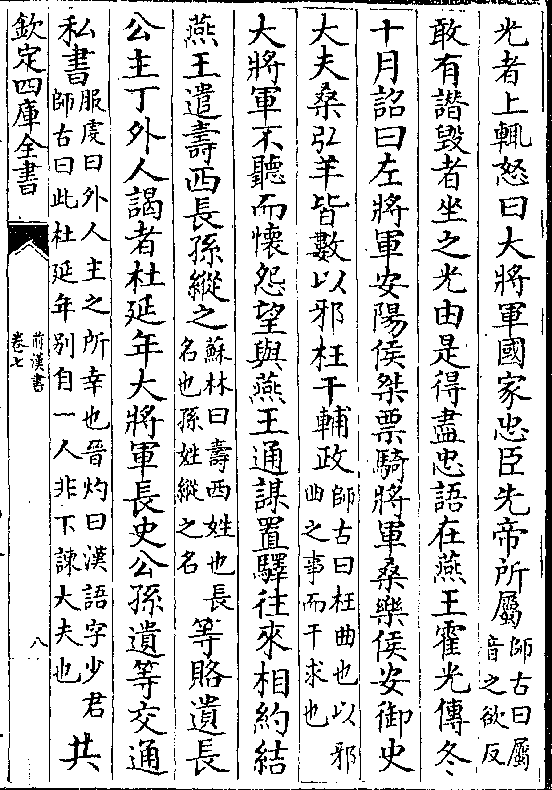 光者上輒怒曰大將軍國家忠臣先帝所屬師古曰屬音之欲反
敢有譖毀者坐之光由是得盡忠語在燕王霍光傳冬
十月詔曰左將軍安陽侯桀票騎將軍桑樂侯安御史
大夫桑弘羊皆數以邪枉干輔政師古曰枉曲也以邪曲之事而干求也
大將軍不聽而懷怨望與燕王通謀置驛往來相約結
燕王遣壽西長孫縱之蘇林曰壽西姓也長名也孫姓縱之名等賂遺長
公主丁外人謁者杜延年大將軍長史公孫遺等交通
私書服虔曰外人主之所幸也晉灼曰漢語字少君師古曰此杜延年別自一人非下諫大夫也共
欽定四庫全書
前漢書
卷七
八